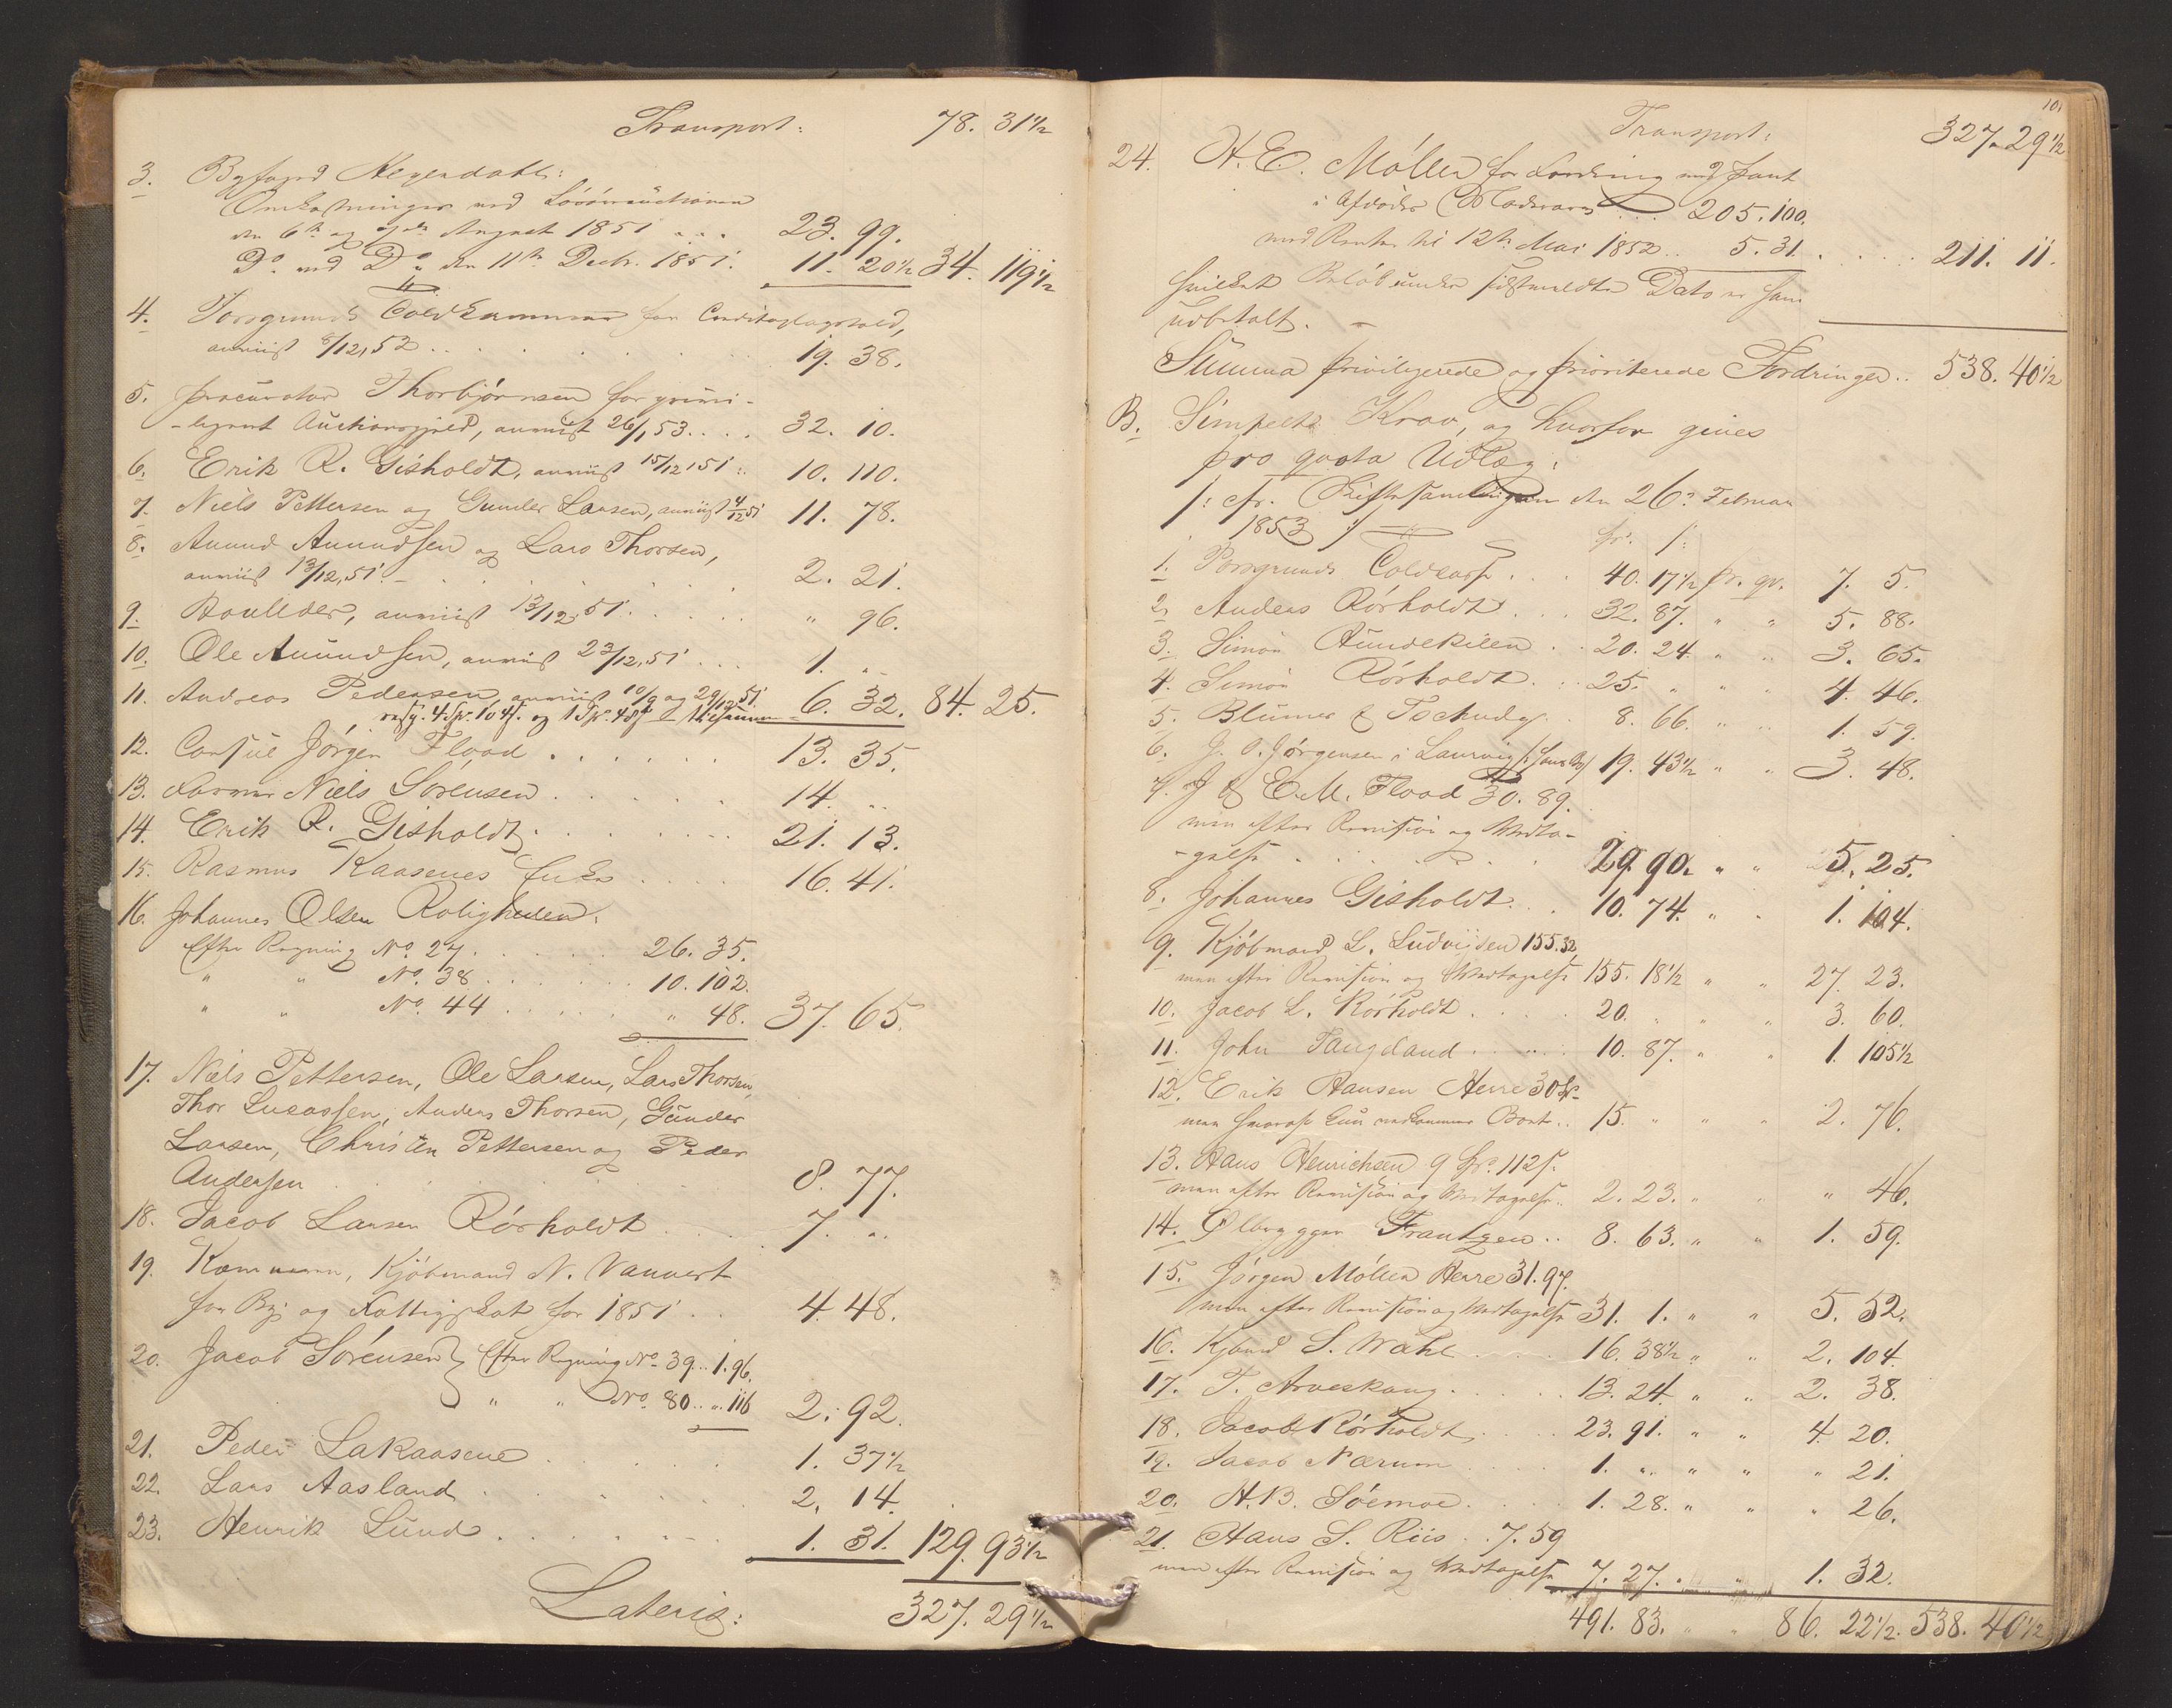 Transport: 78. 31 1/2
3. Byfoged Heyerdahl:
Omkostninger ved Løsøreauctionen
den 6te og 7de August 1851 . . . 23. 99.
Do. ved Do. den 11te Decbr. 1851. 11. 20 1/2 34. 119 1/2
4. Porsgrunds Toldkammer for Creditoplagstold,
anmeldt 8/12,52 . . . 19. 38.
5. Procurator Thorbjørnsen for privi-
-ligeret Auctionsgjeld, anmeldt 26/1,53 . . . 32. 10.
6. Erik R. Gisholdt, anmeldt 15/12,51 : 10. 110.
7. Niels Pettersen og Gunder Larsen, anmeldt 4/12 51 11. 78.
8. Amund Amundsen og Lars Thorsen,
anmeldt 13/12,51. 2. 21.
9. Boullder, anmeldt 13/12,51. . . " 96.
10. Ole Amundsen, anmeldt 23/12,51 . . . 1. "
11. Andreas Pedersen, anmeldt 10/9 og 29/12 51. 6. 32. 84. 25.
resp. 4 Spd. 104 s. og 1 Spd. 48 s. tilsammen
12. Consul Jørgen Flood . . . 13. 35.
13. Niels Sørensen . . . 14. "
14. Erik R. Gisholdt . . . 21. 13.
15. Rasmus Kaasenes Enke . . . 16. 41.
16. Johannes Olsen Roligheden:
Efter Regning No. 27 . . . 26. 35.
" " No. 38 . . . 10. 102.
" " No. 44 . . . " 48. 37. 65.
17. Niels Pettersen, Ole Larsen, Lars Thorsen,
Thor Lucassen, Anders Thorsen, Gunder
Larsen, Christen Pettersen og Peder
Andersen . . . 8. 77.
18. Jacob Larsen Rørholdt . . . 7. "
19. Kæmneren, Kjøbmand N. Vauvert
for By- og Fattigskat for 1851 . . 4. 48.
20. Jacob Sørensen } Efter Regning No. 39 . . 1. 96.
" " No. 80 . . " 116 2. 92.
21. Peder Lakaasene . . . 1. 37 1/2
22. Lars Aasland . . . 2. 14.
23. Henrik Lund . . . 1. 31. 129. 93 1/2
Lateris: 327. 29 1/2
101
Transport: 327. 29 1/2
24. H. E. Møller for Fordring med Pant
i Afdødes Modervarer . . . 205. 100.
med Renter til 12te Mai 1852 . . 5. 31. . . . 211. 11.
hvilket Beløb under sidstmeldte Dato er ham
udbetalt. -
Summa privilegerede og prioriterede Fordringer . . 538. 40 1/2
B. Simpelt Krav, og hvorfor gives
pro quota Udlæg:
/: cfr. Skiftesamlingen den 26. Februar
1853 :/
Spd. s:
1. Porsgrunds Toldcasse . . . 40. 17 1/2 pr. qv. 7. 5.
2. Anders Rørholdt . . . 32. 87. " " 5. 88.
3. Simon Aundekilen . . 20. 24. " " 3. 65.
4. Simon Rørholdt . . . 25. " " " 4. 46.
5. Blumer & Tschudy . . 8. 66. " " 1. 59.
6. J. O. Jørgensen i Laurvig 19. 43 1/2 " " 3. 48.
7. J & E. M. Flood 30. 89.
men efter Revision og Vedta-
-gelse . . . 29. 90. " " 5. 25.
8. Johannes Gisholdt . . . 10. 74. " " 1. 104.
9. Kjøbmand L. Ludvigsen 155. 32
men efter Revision og Vedtagelse 155. 18 1/2 " " 27. 23.
10. Jacob L. Rørholdt . . . 20. " " " 3. 60.
11. John Tangeland . . . 10. 87. " " 1. 105 1/2
12. Erik Hansen Herre 30 Spd.
men hvoraf kun vedkommer Boet . . 15. " " " 2. 76.
13. Hans Henrichsen 9 Spd. 112 s.
men efter Revision og Vedtagelse . . 2. 23. " " " 46.
14. Ølbrygger Frantzen . . 8. 63. " " 1. 59.
15. Jørgen Møller Herre 31. 97.
men efter Revision og Vedtagelse 31. 1. " " 5. 52.
16. Kjbmd S. Wahl . . . 16. 38 1/2 " " 2. 104.
17. T. Arveskoug . . . 13. 24. " " 2. 38.
18. Jacob Rørholdt . . . 23. 91. " " 4. 20.
19. Jacob Nærum . . . 1. " " " " 21.
20. H. B. Söemoe . . . 1. 28. " " " 26.
21. Hans S. Riis . . 7. 59
men efter Revision og Vedtagelse 7. 27. " " 1. 32.
491. 83. " " 86. 22 1/2. 538. 40 1/2